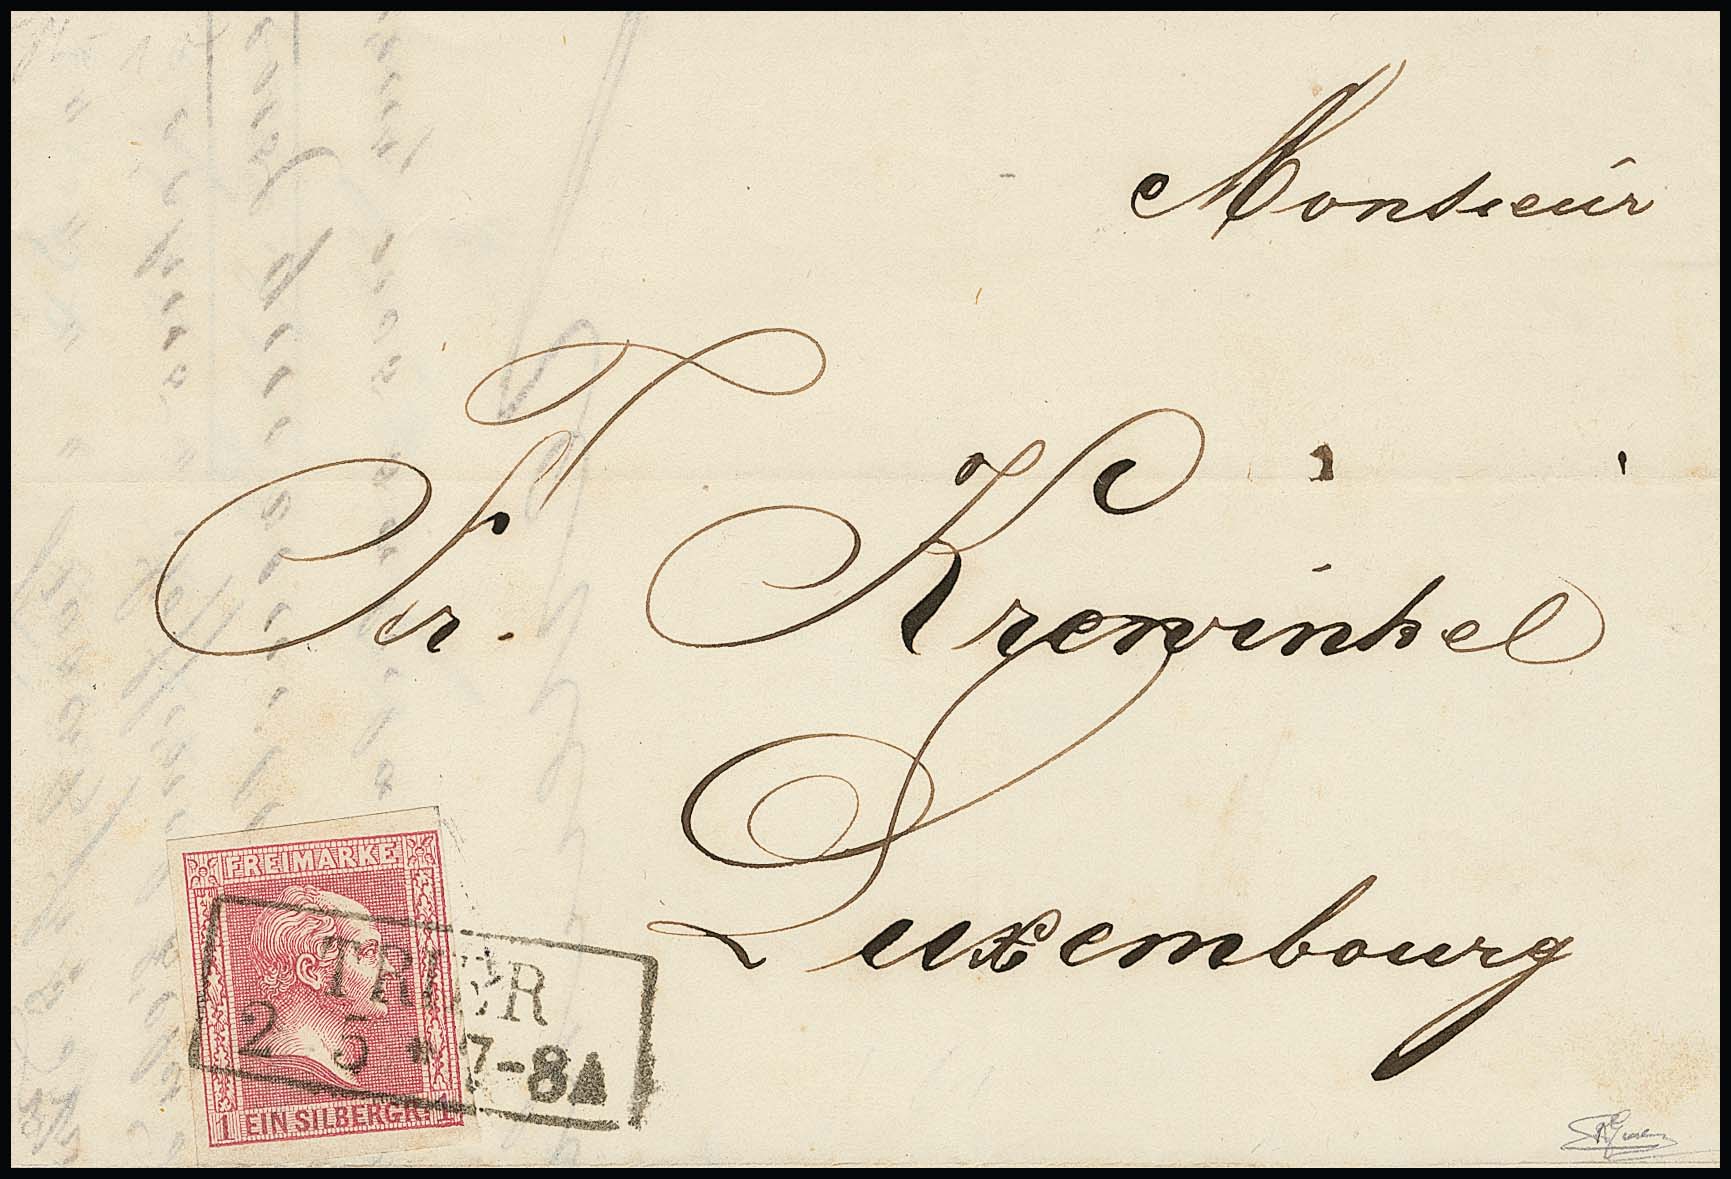 Monsieur
Fr. Krewinkel
Luxembourg
FREIMARKE
TRIER
2 5 * 7-8 A
1 EIN SILBERGR. 1